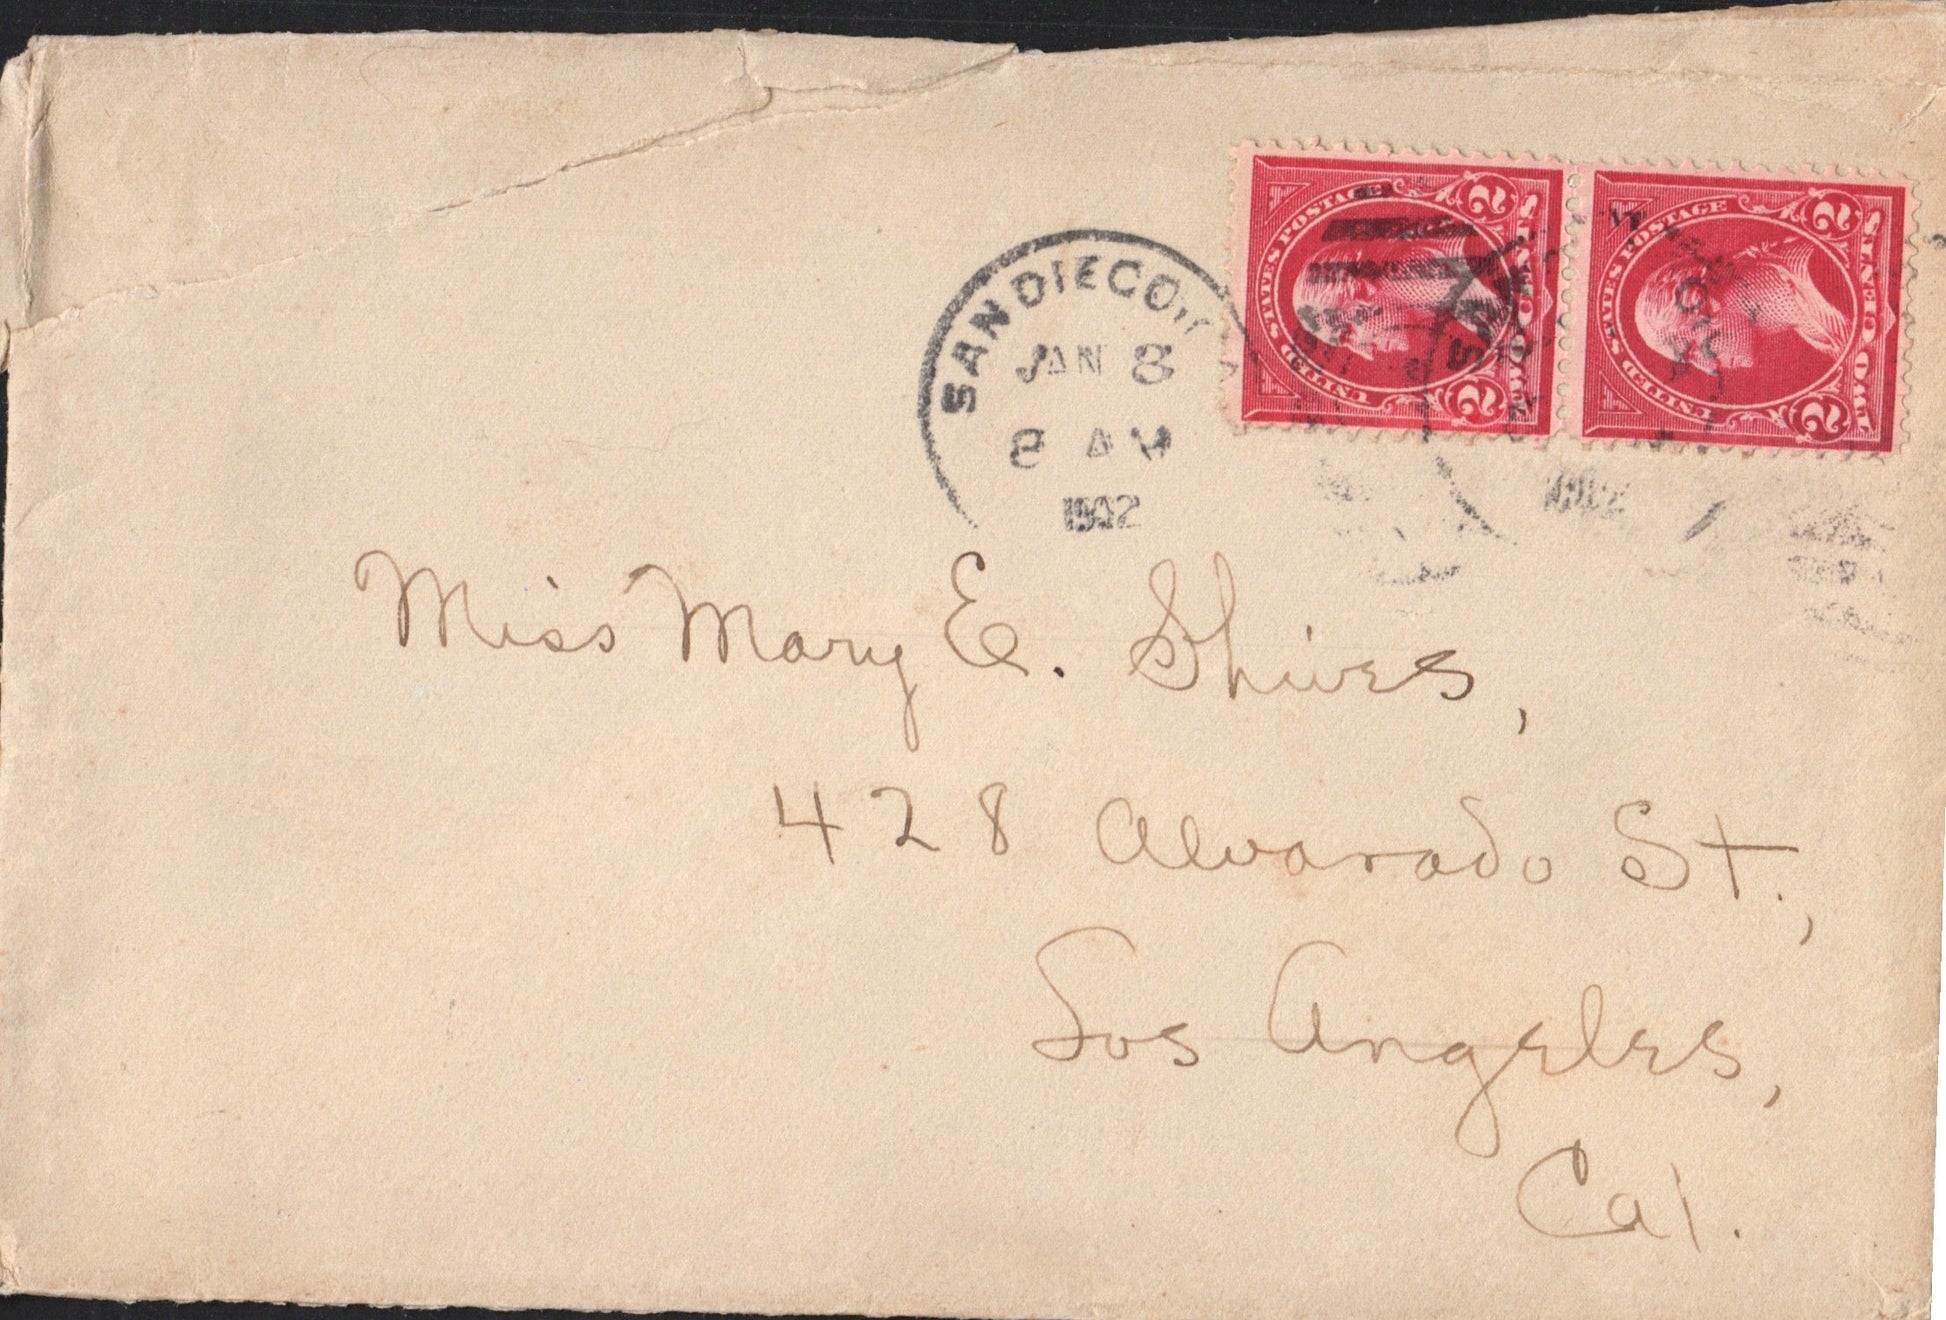 SAN DIEGO
JAN 8
8 AM
1902
UNITED STATES POSTAGE
2 2
TWO CENTS
UNITED STATES POSTAGE
2 2
TWO CENTS
1902
Miss Mary E. Shires,
428 Alvarado St.,
Los Angeles,
Cal.